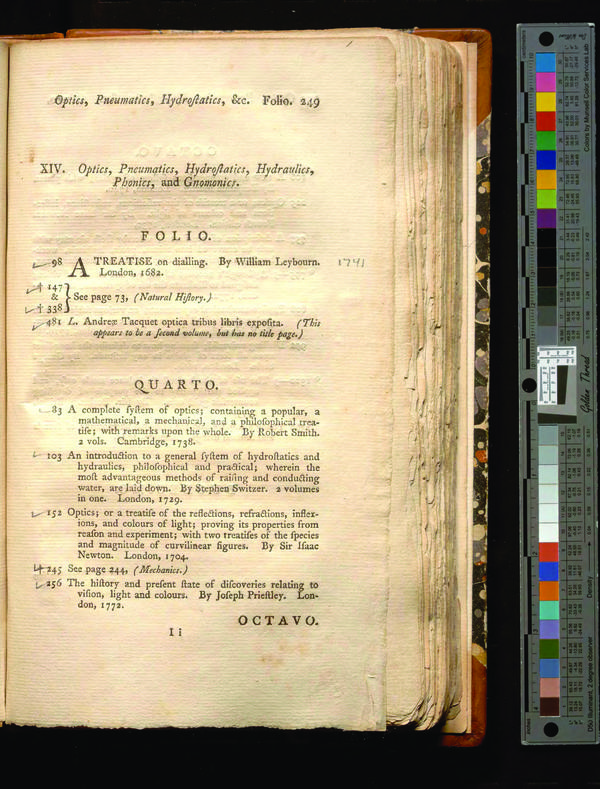 Optics, Pneumatics, Hydroſtatics, &c. Folio. 249
XIV. Optics, Pneumatics, Hydroſtatics, Hydraulics,
Phonics, and Gnomonics.
FOLIO.
98 A TREATISE on dialling. By William Leybourn. 1741
London, 1682.
+ 147
& } See page 73, (Natural Hiſtory.)
+ 338
481 L. Andreæ Tacquet optica tribus libris expoſita. (This
appears to be a ſecond volume, but has no title page.)
QUARTO.
83 A complete ſyſtem of optics; containing a popular, a
mathematical, a mechanical, and a philoſophical trea-
tiſe; with remarks upon the whole. By Robert Smith.
2 vols. Cambridge, 1738.
103 An introduction to a general ſyſtem of hydroſtatics and
hydraulics, philoſophical and practical; wherein the
moſt advantageous methods of raiſing and conducting
water, are laid down. By Stephen Switzer. 2 volumes
in one. London, 1729.
152 Optics; or a treatiſe of the reflections, refractions, inflex-
ions, and colours of light; proving its properties from
reaſon and experiment; with two treatiſes of the ſpecies
and magnitude of curvilinear figures. By Sir Iſaac
Newton. London, 1704.
+ 245 See page 244, (Mechanics.)
256 The hiſtory and preſent ſtate of diſcoveries relating to
viſion, light and colours. By Joſeph Prieſtley. Lon-
don, 1772.
OCTAVO.
I i
Colors by Munsell Color Services Lab
Golden Thread
Density
D50 Illuminant, 2 degree observer